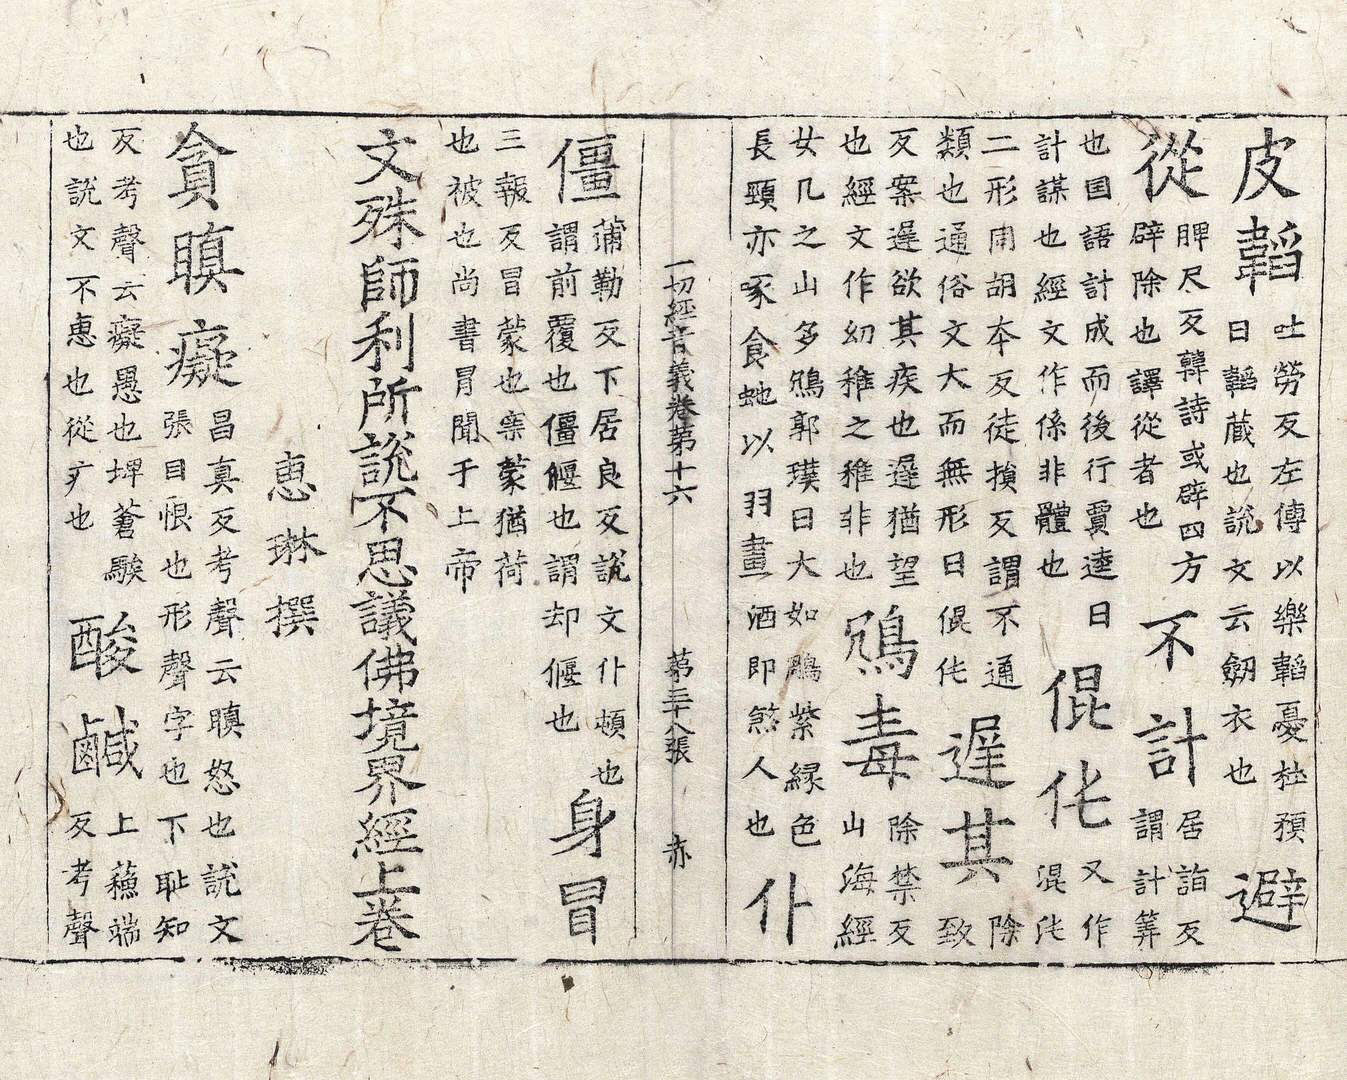 皮韜吐勞反左傳以樂韜憂杜預
曰韜藏也說文云劒衣也避
從脾尺反韓詩或辟四方
辟除也譯從者也不計居詣反
謂計筭
也国語計成而後行賈逵曰
計謀也經文作係非體也倱伅又作
混沌
二形同胡本反徒損反謂不通
類也通俗文大而無形曰倱伅遟其除
致
反案遟欲其疾也遟猶望
也經文作幼稚之稚非也鴆毒除禁反
山海經
女几之山多鴆郭璞曰大如鵰紫緑色
長頸亦啄食虵以羽畫酒即煞人也仆
一切經音義卷第十六　第三十八張　赤
僵蒲勒反下居良反說文仆頓也
謂前覆也僵偃也謂却偃也身冒
三報反冒蒙也案蒙猶荷
也被也尚書冐聞于上帝
文殊師利所說不思議佛境界經上卷
惠琳撰
貪瞋癡昌真反考聲云瞋怒也說文
張目恨也形聲字也下耻知
反考聲云癡愚也埤蒼騃
也說文不惠也從疒也酸鹹上蘓端
反考聲